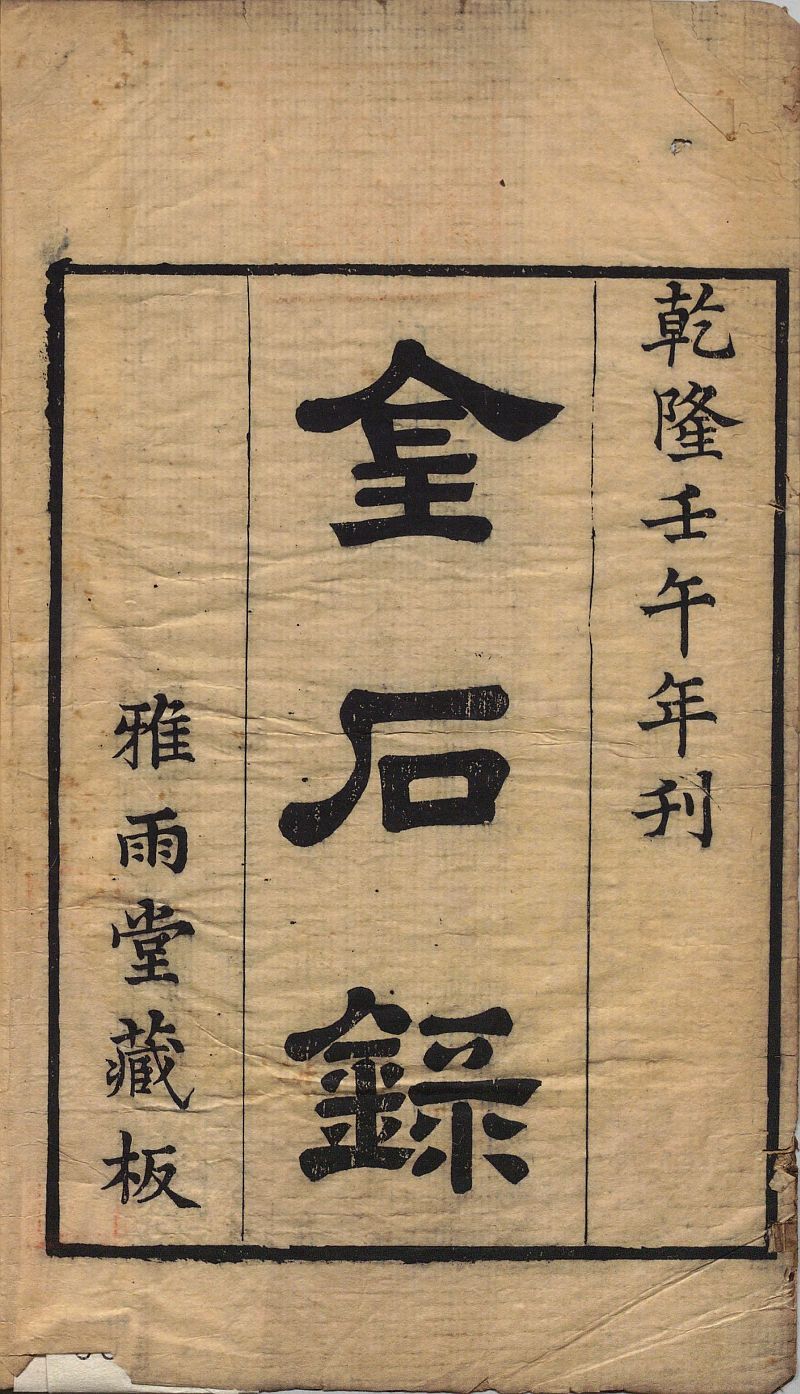 乾隆壬午年刊
金石錄
雅雨堂藏板